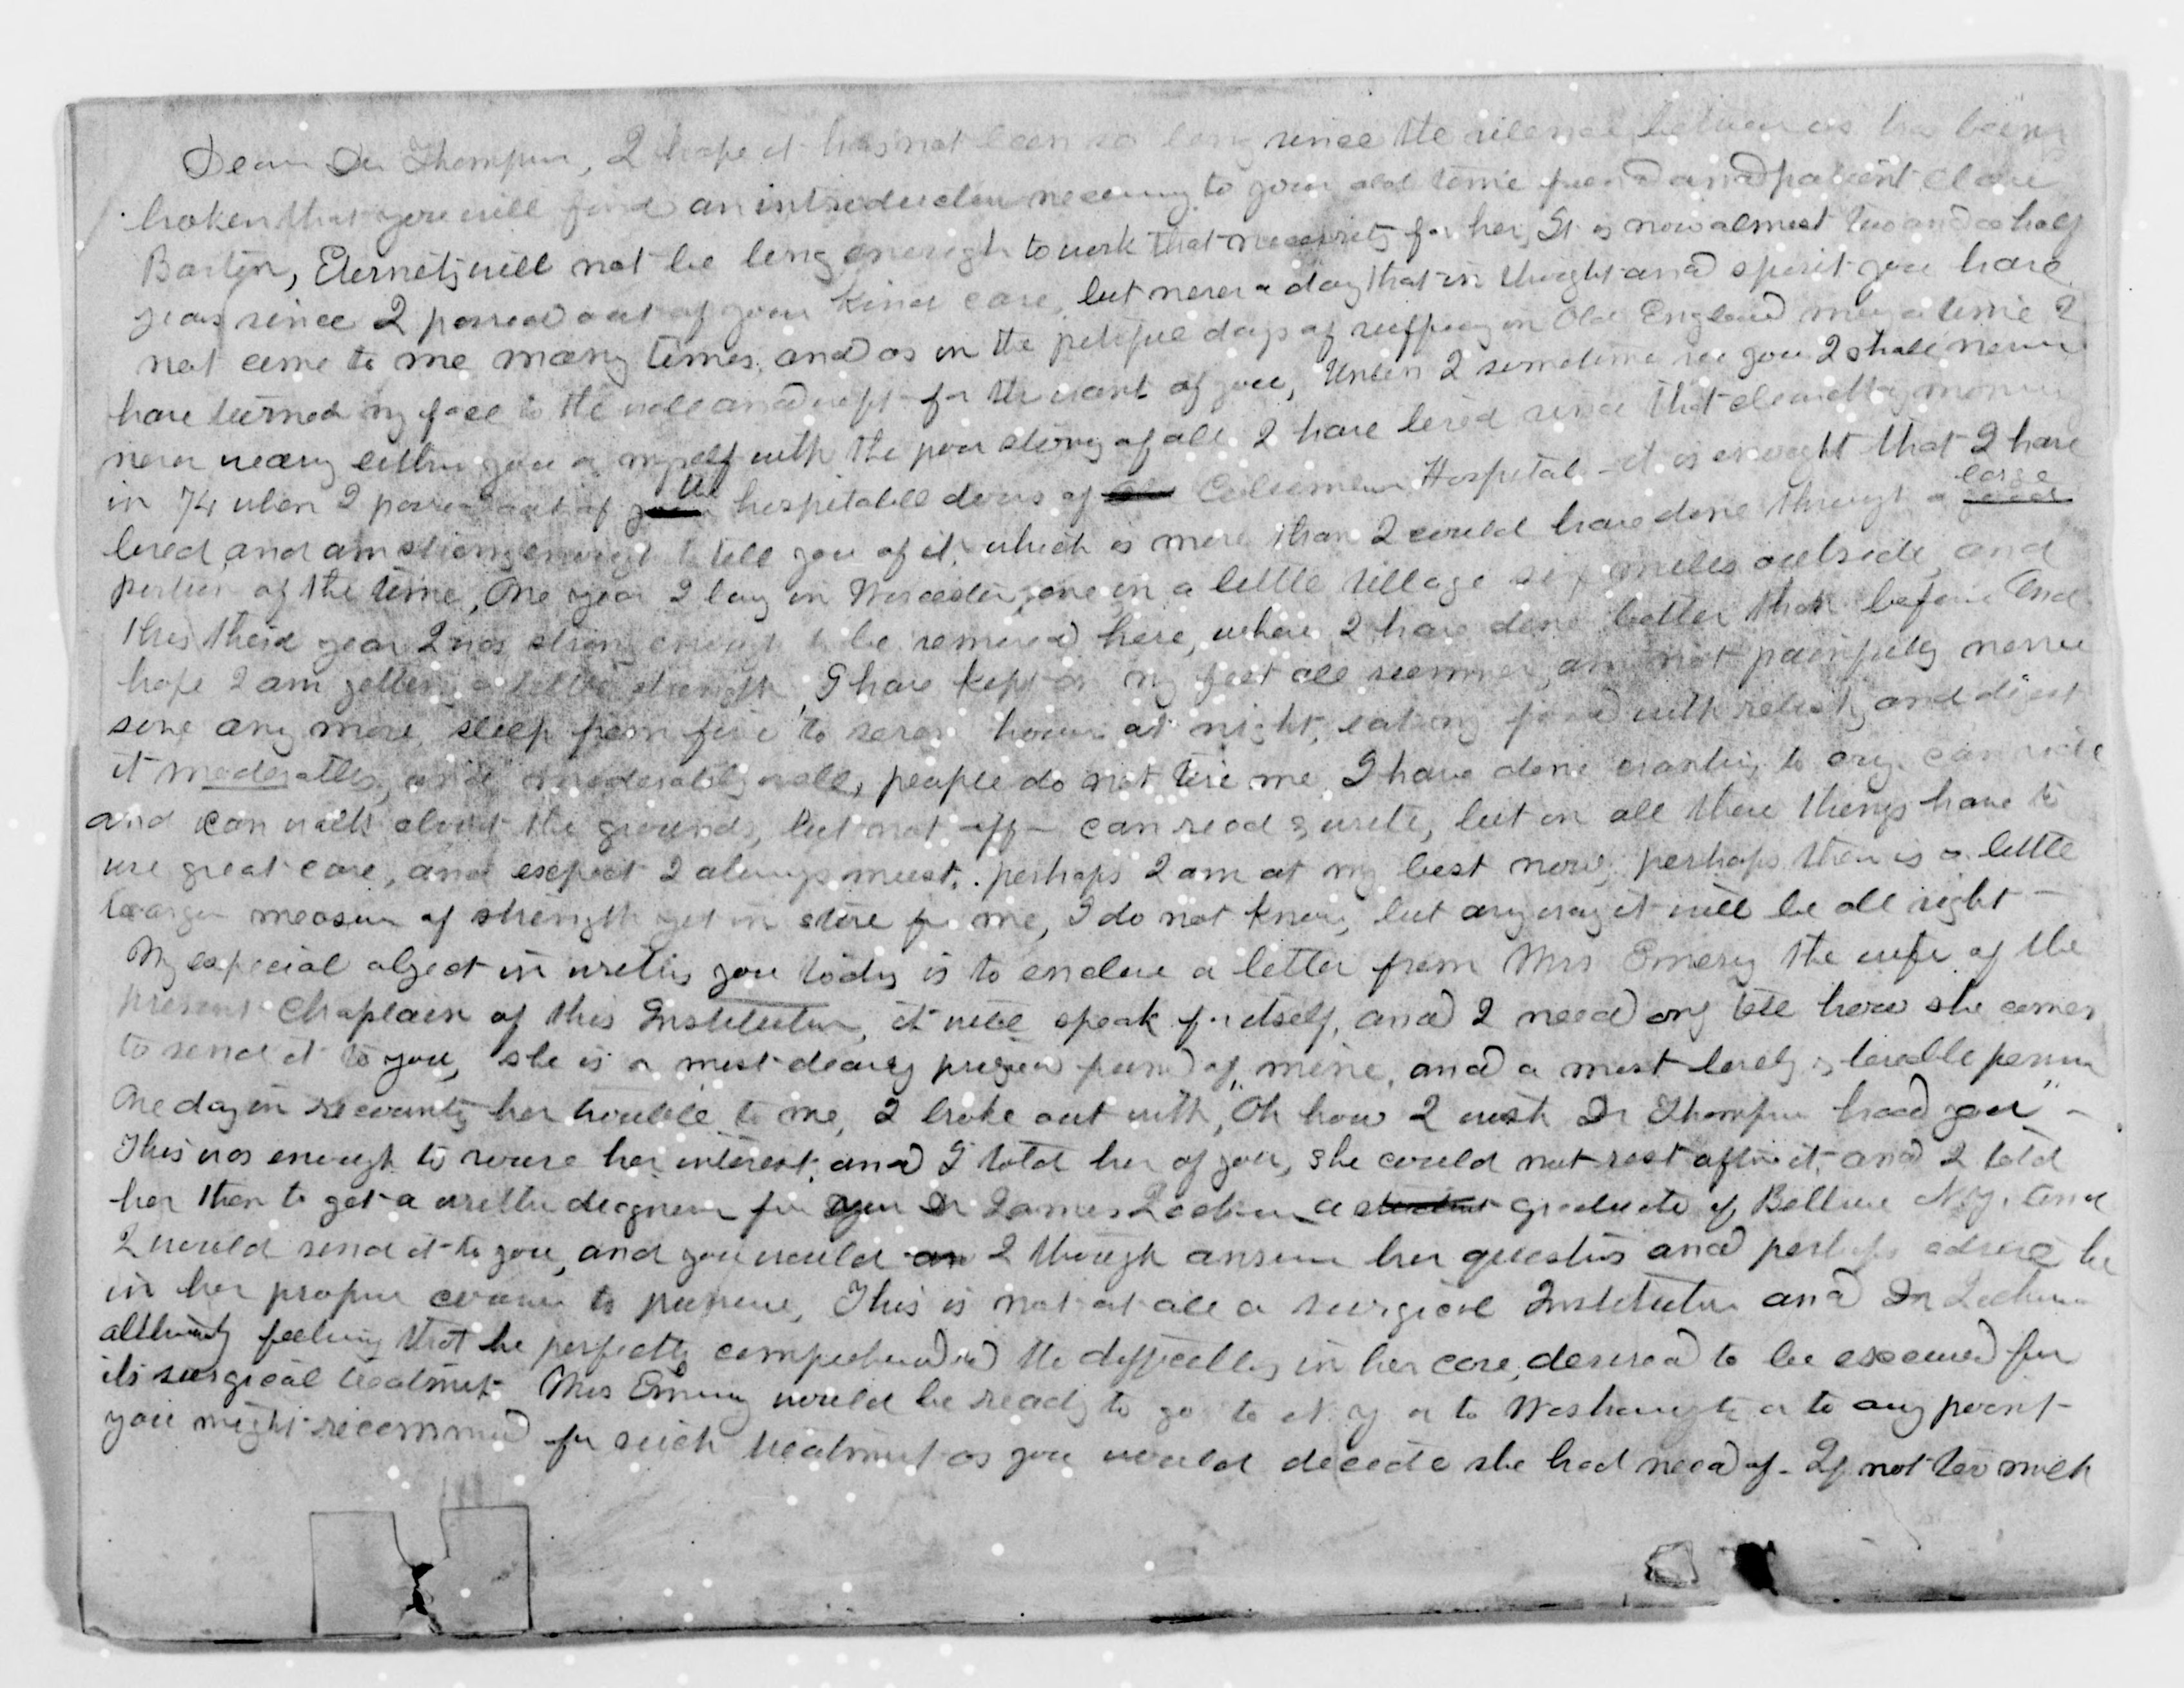 Dear Dr Thompson, I hope it has not been so long since the silence between us has being
broken that you will find an introduction necessary to your old time friend and patient Clara
Barton, Eternity will not be long enough to work that necessity for her, It is now almost two and a half
years since I passed out of your kind care, but never a day that in thought and spirit you have
not come to me many times. and as in the pitiful days of suffering in Old England many a time I
have turned my face to the wall and wept for the want of you, Unless I sometime see you I shall never
never weary either you or myself with the poor story of all I have lived since that morning
in 74 when I passed out of the hospitable doors of Hospital - it is enough that I have
lived, and am strong enough to tell you of it, which is more than I could have done through a large
portion of the time, One year I lay in Worcester, one in a little village six miles outside, and
this third year I was strong enough to be removed here, where I have done better than before and
hope I am getting a little strength, I have kept on my feet all summer, am not painfully nerve
sore any more, sleep from five to seven hours at night, eat my food with relish, and digest
it moderately, and moderately well, people do not tire me, I have done wanting to cry. can ride
and can walk about the grounds, but not off - can read & write, but in all these things have to
use great care, and expect I always must, perhaps I am at my best now, perhaps there is a little
larger measure of strength yet in store for me, I do not know, but anyway it will be all right -
My especial object in writing you today is to enclose a letter from Mrs Emery the wife of the
present Chaplain of this Institution, it will speak for itself, and I need only tell how she comes
to send it to you, she is a most dearly prized friend of mine, and a most lovely & lovable person
One day in recounting her trouble to me, I broke out with, "Oh how I wish Dr Thompson had you" -
This was enough to rouse her interest, and I told her of you, she could not rest after it, and I told
her then to get a written diagnosis from Dr James a student graduate of Bellvue N.Y. and
I would send it to you, and you would I though answer her questions and perhaps advise her
in her proper course to pursue, This is not at all a surgical Institution and Dr
although feeling that he perfectly comprehended the difficulty in her case, desired to be excused from
its surgical treatment. Mrs Emery would be ready to go to N.Y or to Washington or to any point
you might recommend for such treatment as you would decide she had need of - If not too much